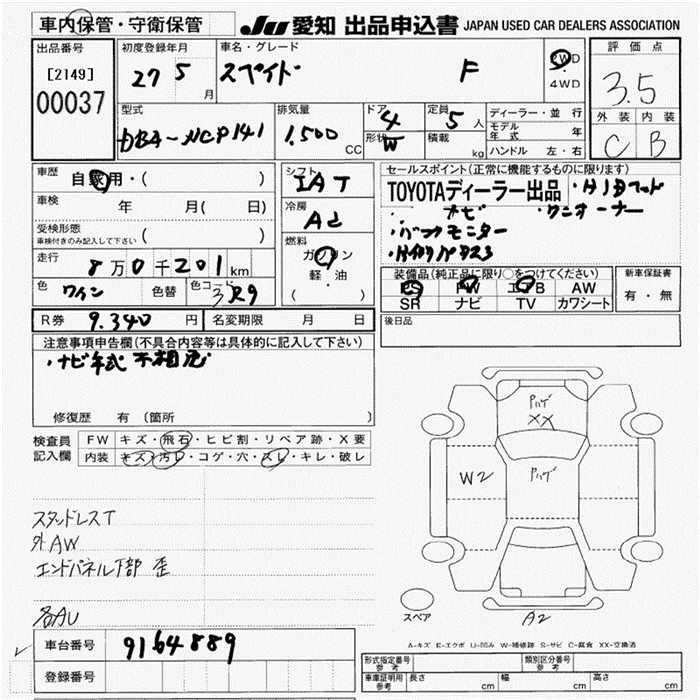 車内保管・守衛保管
JU 愛知 出品申込書 JAPAN USED CAR DEALERS ASSOCIATION
出品番号 [2149] 00037
初度登録年月 27 5 月
車名・グレード スペイド F
2WD ・ 4WD
評価点 3.5
外装 C 内装 B
型式 DBA-NCP141
排気量 1.500 CC
ドア 4 形状 W
定員 5 人 積載 kg
ディーラー・並行
モデル年式 年
ハンドル 左・右
車歴 自家用・( )
車検 年 月( 日)
受検形態 車検付きのみ記入して下さい ( )
走行 8万0千201km
色 ワイン 色替 色コード 3R9
シフト IAT
冷房 AC
燃料 ガソリン 軽・油 ( )
セールスポイント(正常に機能するものに限ります)
TOYOTAディーラー出品 ・HIDヘッド
・ナビ ・ワンオーナー
・バックモニター
装備品(純正品に限り○をつけてください)
PS PW エアB AW
SR ナビ TV カワシート
新車保証書 有・無
R券 9.340 円 名変期限 月 日
後日品
注意事項申告欄(不具合内容等は具体的に記入して下さい)
・ナビ年式不相応
修復歴 有 (箇所 )
検査員記入欄
FW キズ・飛石・ヒビ割・リペア跡・X要
内装 キズ・汚レ・コゲ・穴・スレ・キレ・破レ
スタッドレスT
外AW
エンドパネル下部 歪
各AU
Pハゲ
XX
W2
Pハゲ
スペア
A2
A-キズ E-エクボ U-凹み W-補修跡 S-サビ C-腐食 XX-交換済
車台番号 9164889
登録番号
型式指定番号 参考 類別区分番号 参考
車庫証明用 参考 長さ cm 幅 cm 高さ cm